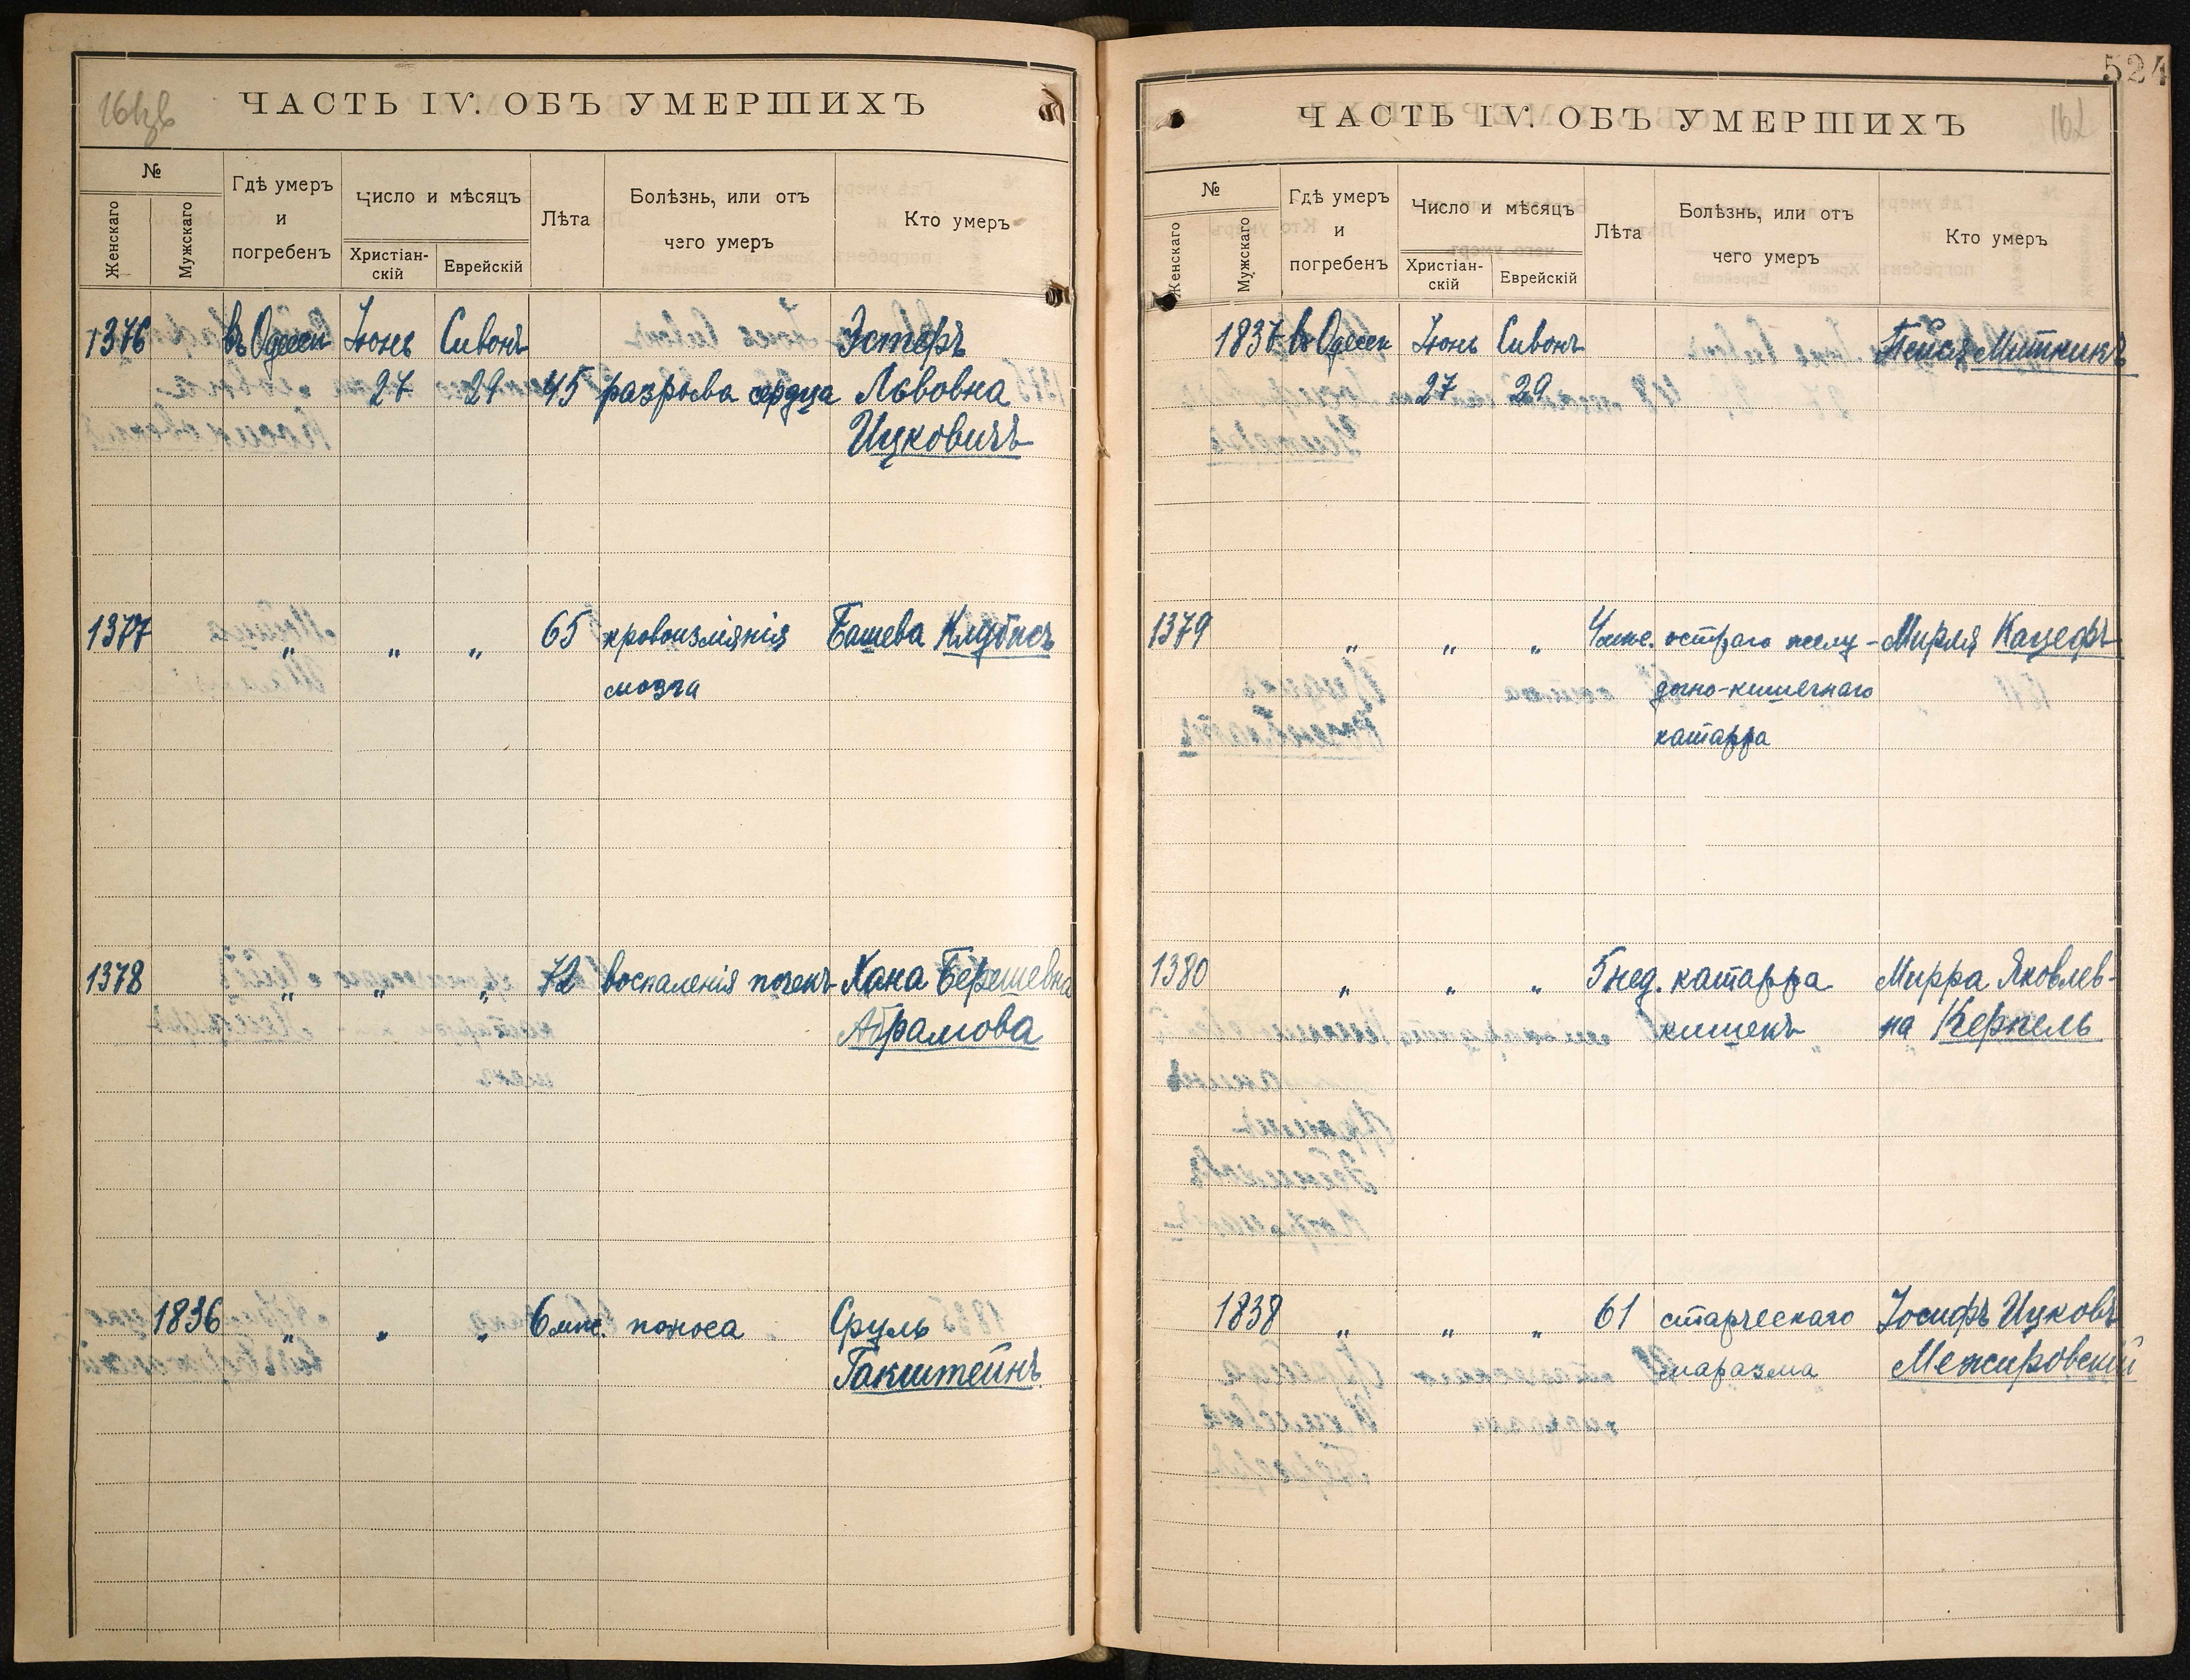 161об
ЧАСТЬ IV. ОБЪ УМЕРШИХЪ
№
Женскаго
Мужскаго
Гдѣ умеръ
и
погребенъ
Число и мѣсяцъ
Христіан-
скій
Еврейскій
Лѣта
Болѣзнь, или отъ
чего умеръ
Кто умеръ
1376 въ Одессѣ Іюнь Сивонъ Эстеръ
27 29 45 разрыва сердца Львовна
Ицковичъ
1377 " " " 65 кровоизліянія Башева Клубисъ
мозга
1378 " " " 72 воспаленія почекъ Хана Берешевна
Абрамова
1836 " " " 6 мѣс. поноса Сруль
Гакштейнъ
524
162
ЧАСТЬ IV. ОБЪ УМЕРШИХЪ
№
Женскаго
Мужскаго
Гдѣ умеръ
и
погребенъ
Число и мѣсяцъ
Христіан-
скій
Еврейскій
Лѣта
Болѣзнь, или отъ
чего умеръ
Кто умеръ
1837 въ Одессѣ Іюнь Сивонъ Пейся Митникъ
27 29
1379 " " " 4 мѣс. остраго желу- Мирля Кацефъ
дочно-кишечнаго
катарра
1380 " " " 5 нед. катарра Мирра Яковлев-
кишекъ на Кернель
1838 " " " 61 старческаго Іосифъ Ицковъ
маразма Межировскій